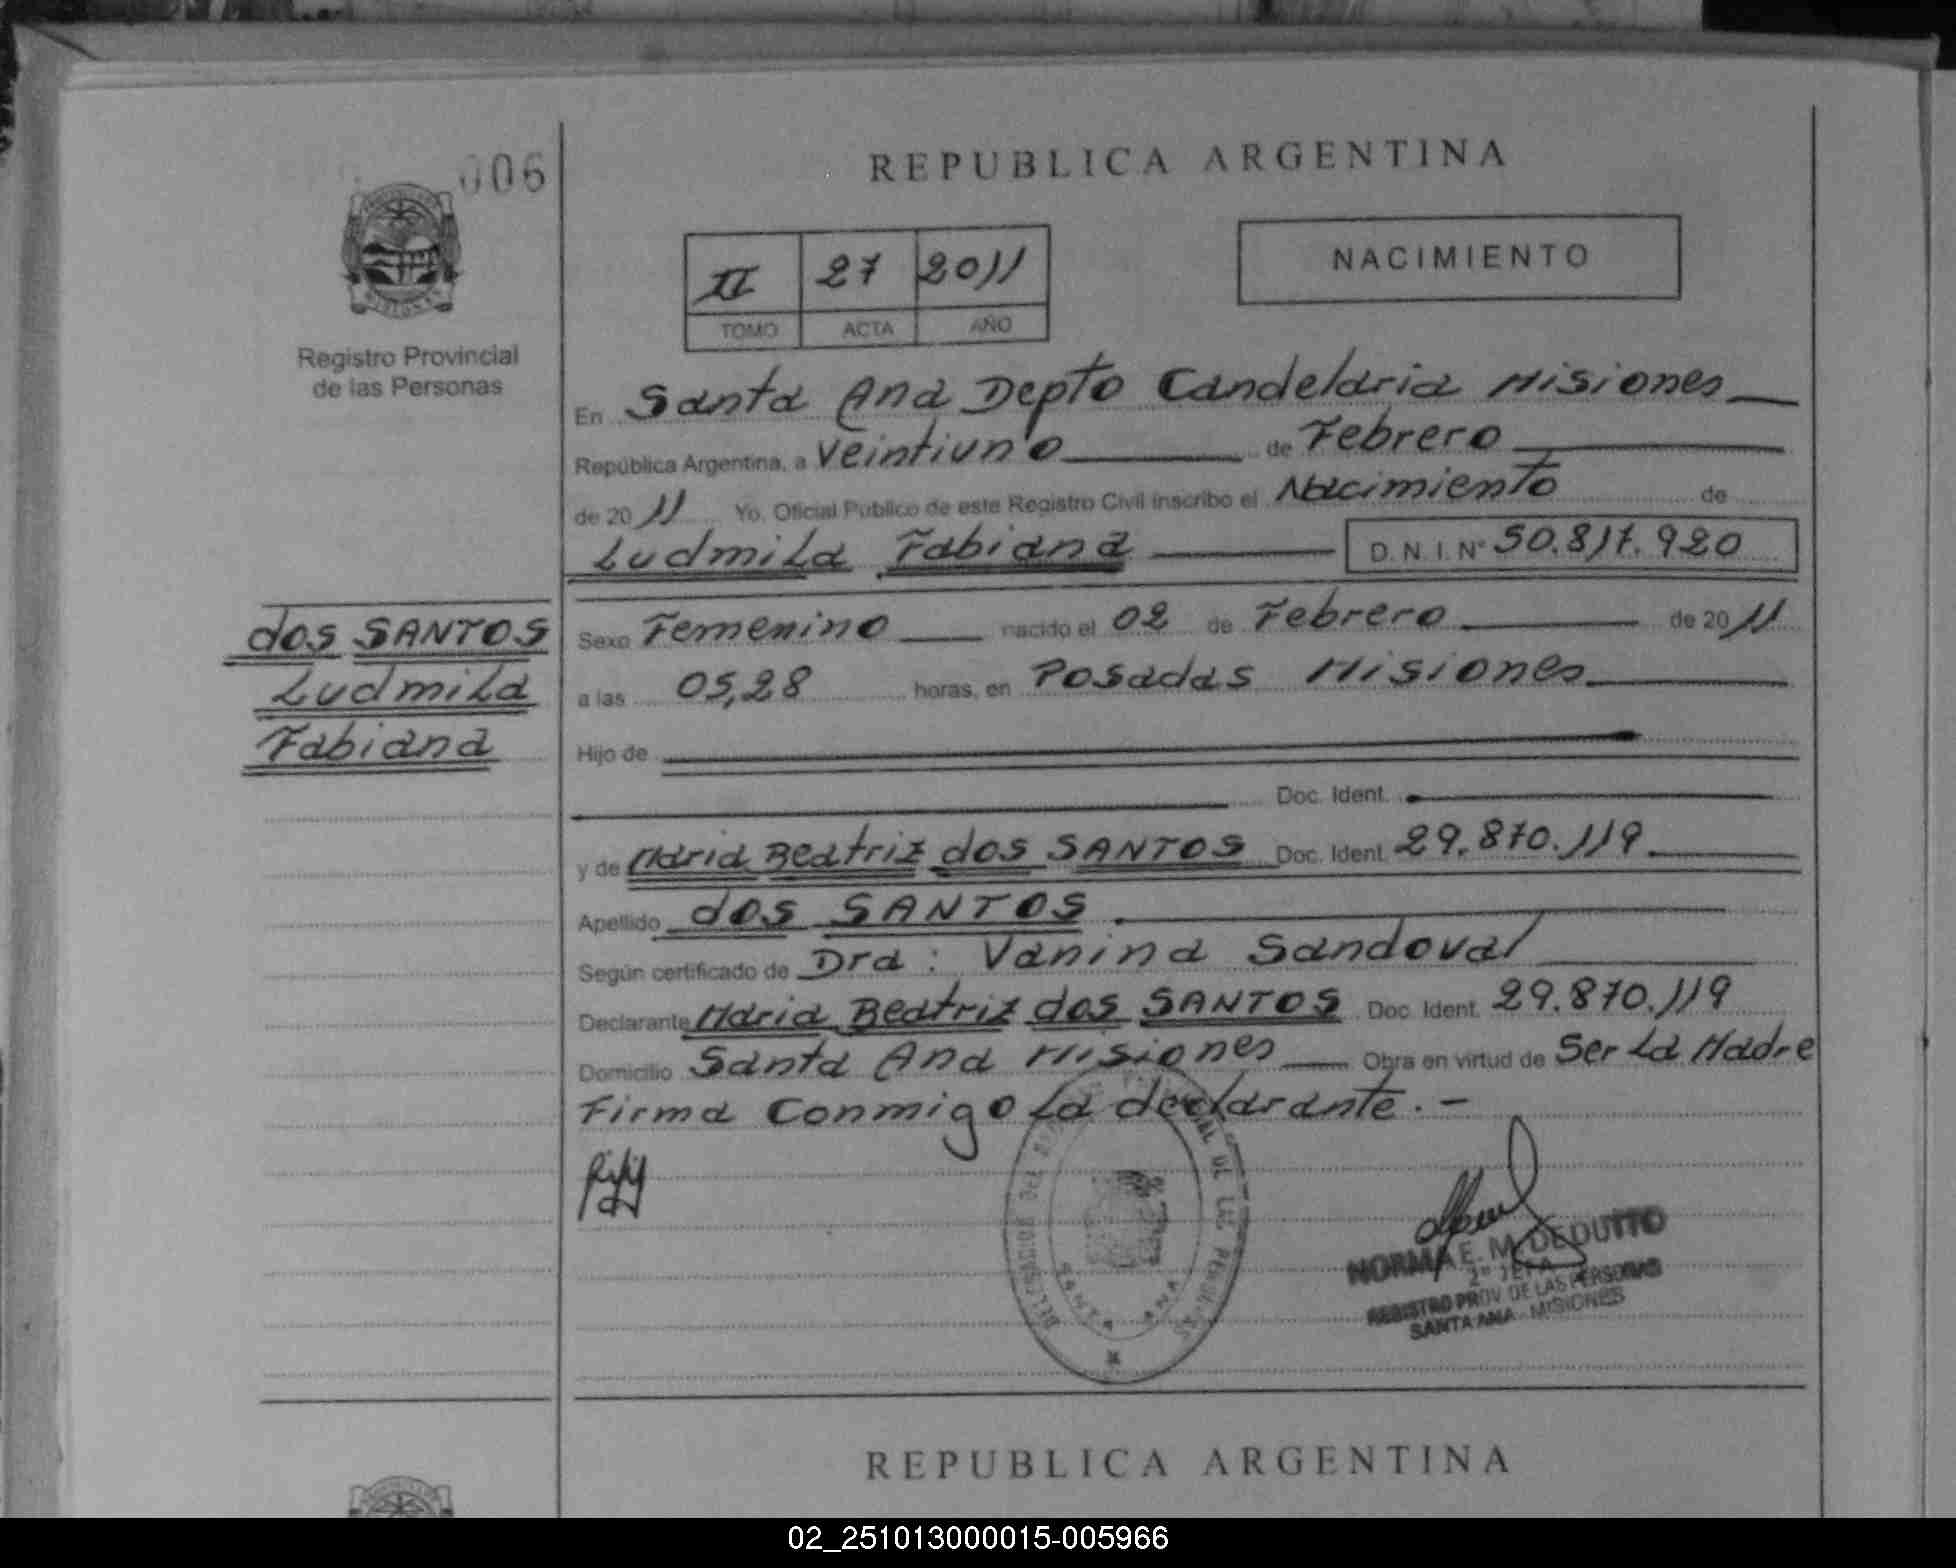 006
Registro Provincial
de las Personas
dos SANTOS
Ludmila
Fabiana
REPUBLICA ARGENTINA
II 27 2011
TOMO ACTA AÑO
NACIMIENTO
En Santa Ana Depto Candelaria Misiones
República Argentina, a Veintiuno de Febrero
de 2011 Yo, Oficial Público de este Registro Civil inscribo el Nacimiento de
Ludmila Fabiana D.N.I. N° 50.817.920
Sexo Femenino nacido el 02 de Febrero de 2011
a las 05,28 horas, en Posadas Misiones
Hijo de
Doc. Ident.
y de Maria Beatriz dos SANTOS Doc. Ident. 29.870.119
Apellido dos SANTOS
Según certificado de Dra: Vanina Sandoval
Declarante Maria Beatriz dos SANTOS Doc. Ident. 29.870.119
Domicilio Santa Ana Misiones Obra en virtud de Ser La Madre
Firma Conmigo La declarante.-
NORMA E. M. DEDUTTO
2° JEFA
REGISTRO PROV. DE LAS PERSONAS
SANTA ANA - MISIONES
REPUBLICA ARGENTINA
02_251013000015-005966